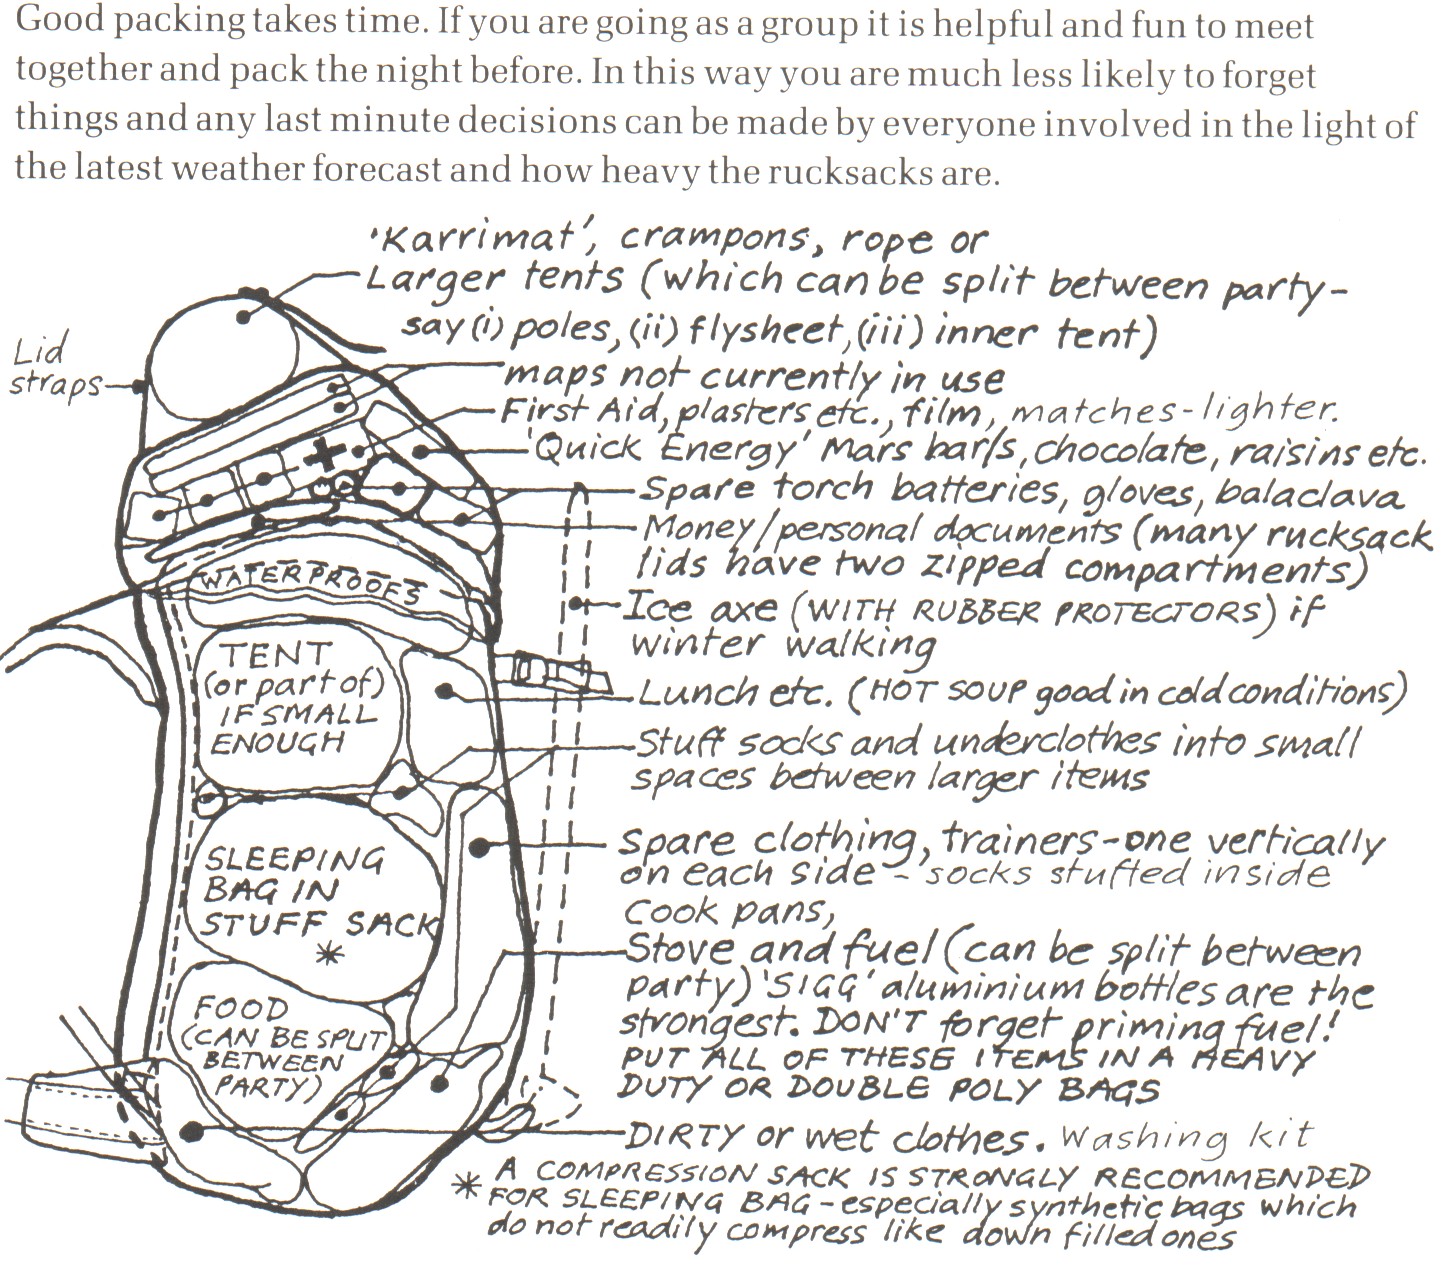 Good packing takes time. If you are going as a group it is helpful and fun to meet
together and pack the night before. In this way you are much less likely to forget
things and any last minute decisions can be made by everyone involved in the light of
the latest weather forecast and how heavy the rucksacks are.
'Karrimat', crampons, rope or
Larger tents (which can be split between party-
say (i) poles, (ii) flysheet, (iii) inner tent)
Lid
straps
maps not currently in use
First Aid, plasters etc., film, matches-lighter.
'Quick Energy' Mars bar/s, chocolate, raisins etc.
Spare torch batteries, gloves, balaclava
Money/personal documents (many rucksack
lids have two zipped compartments)
WATERPROOFS
Ice axe (WITH RUBBER PROTECTORS) if
winter walking
TENT
(or part of)
IF SMALL
ENOUGH
Lunch etc. (HOT SOUP good in cold conditions)
Stuff socks and underclothes into small
spaces between larger items
SLEEPING
BAG IN
STUFF SACK
*
Spare clothing, trainers-one vertically
on each side - socks stuffed inside
Cook pans,
Stove and fuel (can be split between
party) 'SIGG' aluminium bottles are the
strongest. DON'T forget priming fuel!
PUT ALL OF THESE ITEMS IN A HEAVY
DUTY OR DOUBLE POLY BAGS
FOOD
(CAN BE SPLIT
BETWEEN
PARTY)
DIRTY or wet clothes. Washing kit
* A COMPRESSION SACK IS STRONGLY RECOMMENDED
FOR SLEEPING BAG - especially synthetic bags which
do not readily compress like down filled ones